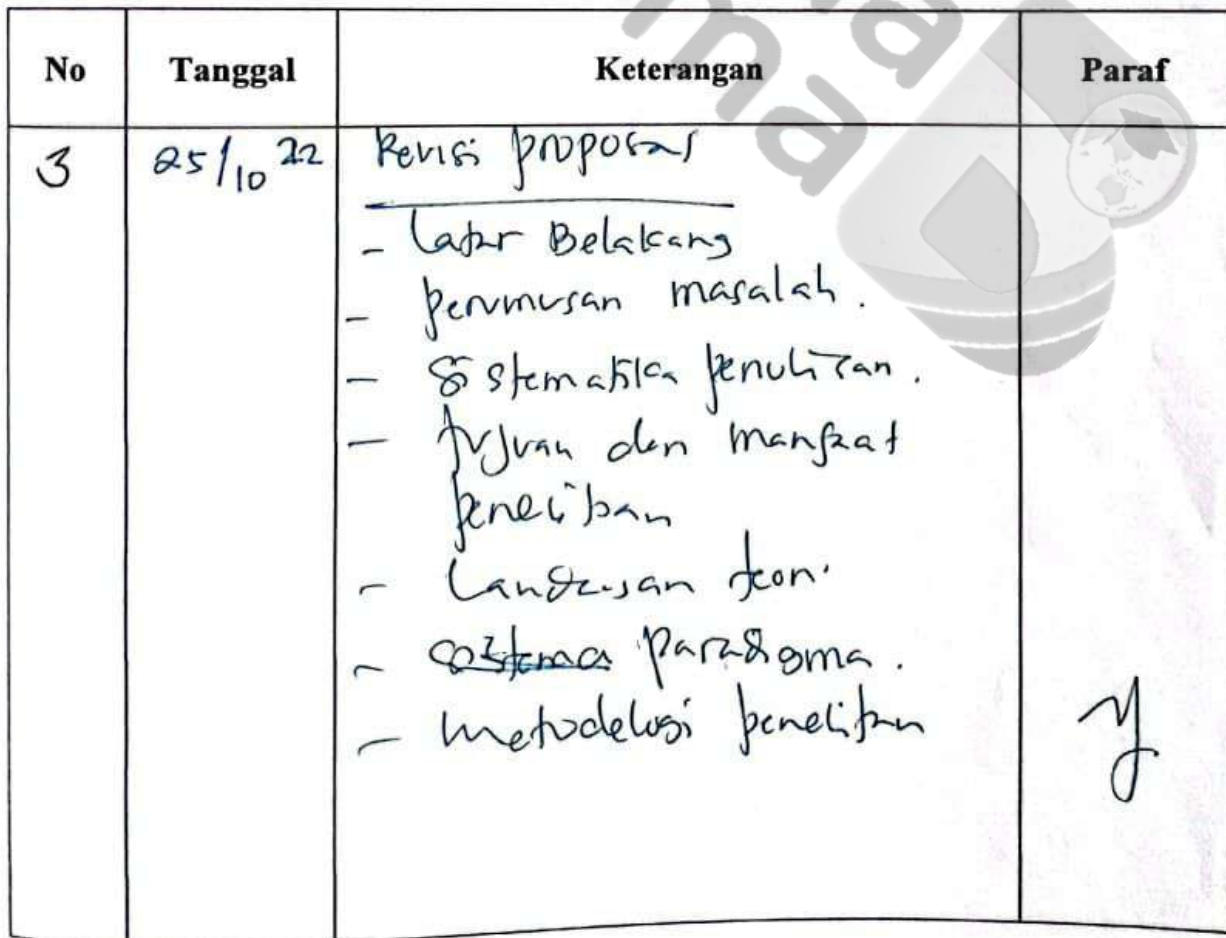 No Tanggal Keterangan Paraf
3 25/10 22 Revisi proposal
- Latar Belakang
- perumusan masalah.
- Sistematika penulisan.
- tujuan dan manfaat
penelitian
- Landasan teori
- paradigma.
- metodelogi penelitian